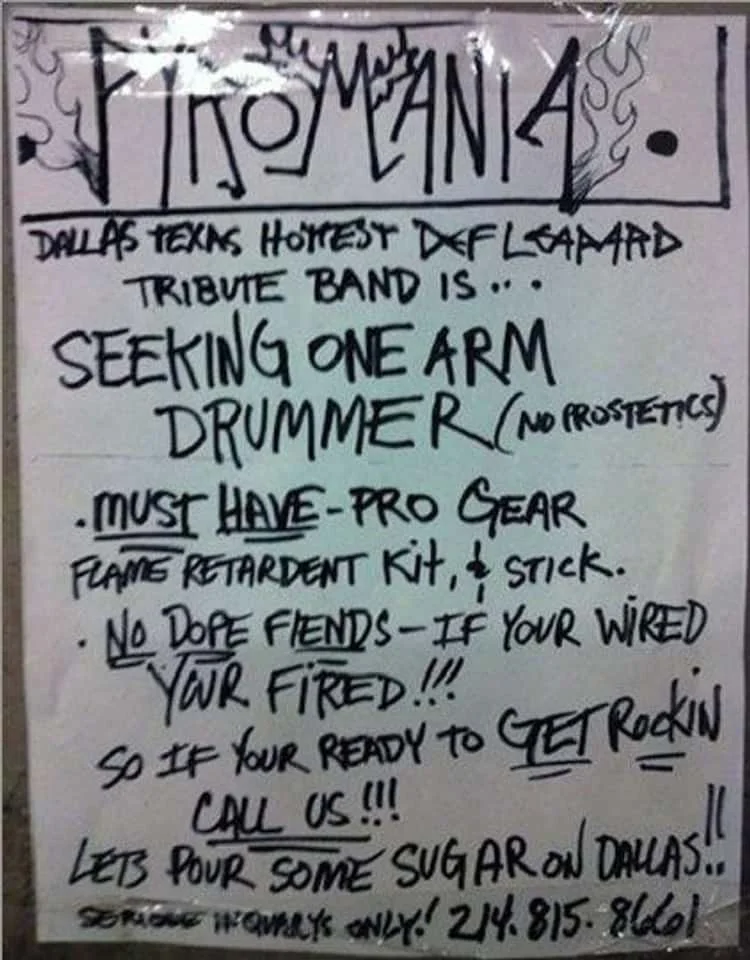 PYROMANIA.
DALLAS TEXAS HOTTEST DEF LEAPARD
TRIBUTE BAND IS...
SEEKING ONE ARM
DRUMMER (NO PROSTETICS)
. MUST HAVE - PRO GEAR
FLAME RETARDENT Kit, & STICK.
. NO DOPE FIENDS - IF YOUR WiRED
YOUR FiRED!!!
SO IF YOUR READY TO GET ROCKiN
CALL US!!!
LETS POUR SOME SUGAR ON DALLAS!!
SERIOUS INQUARYS ONLY! 214. 815. 8661